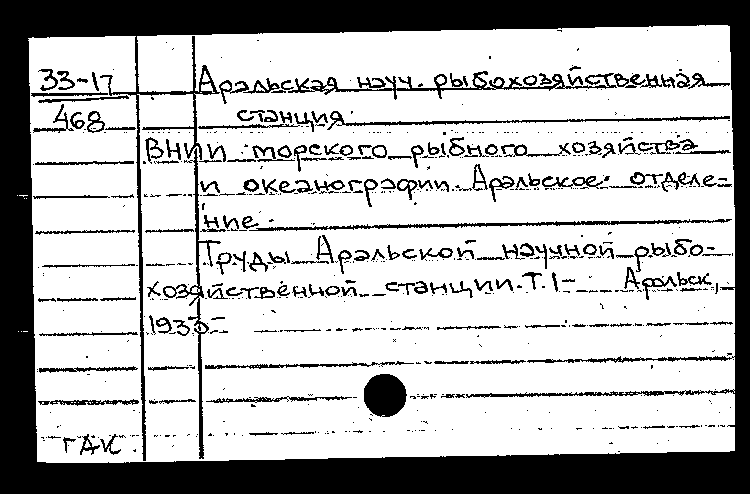 33-17 Аральская науч. рыбохозяйственная
468 станция.
ВНИИ морского рыбного хозяйства
и океанографии. Аральское отделе-
ние.
Труды Аральской научной рыбо-
хозяйственной станции. Т. 1- Аральск,
1933-
ГАК.